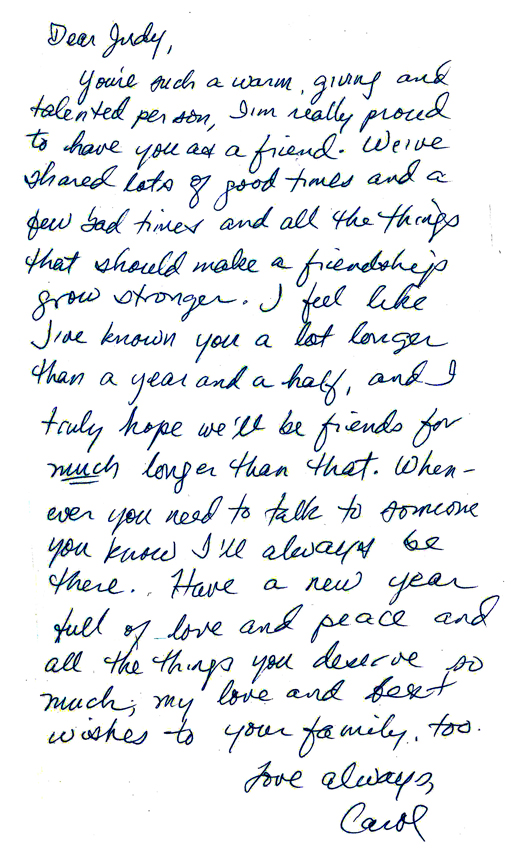 Dear Judy,
You're such a warm, giving and
talented person, I'm really proud
to have you as a friend. We've
shared lots of good times and a
few bad times and all the things
that should make a friendship
grow stronger. I feel like
I've known you a lot longer
than a year and a half, and I
truly hope we'll be friends for
much longer than that. When-
ever you need to talk to someone
you know I'll always be
there.. Have a new year
full of love and peace and
all the things you deserve so
much; my love and best
wishes to your family, too.
Love always,
Carol